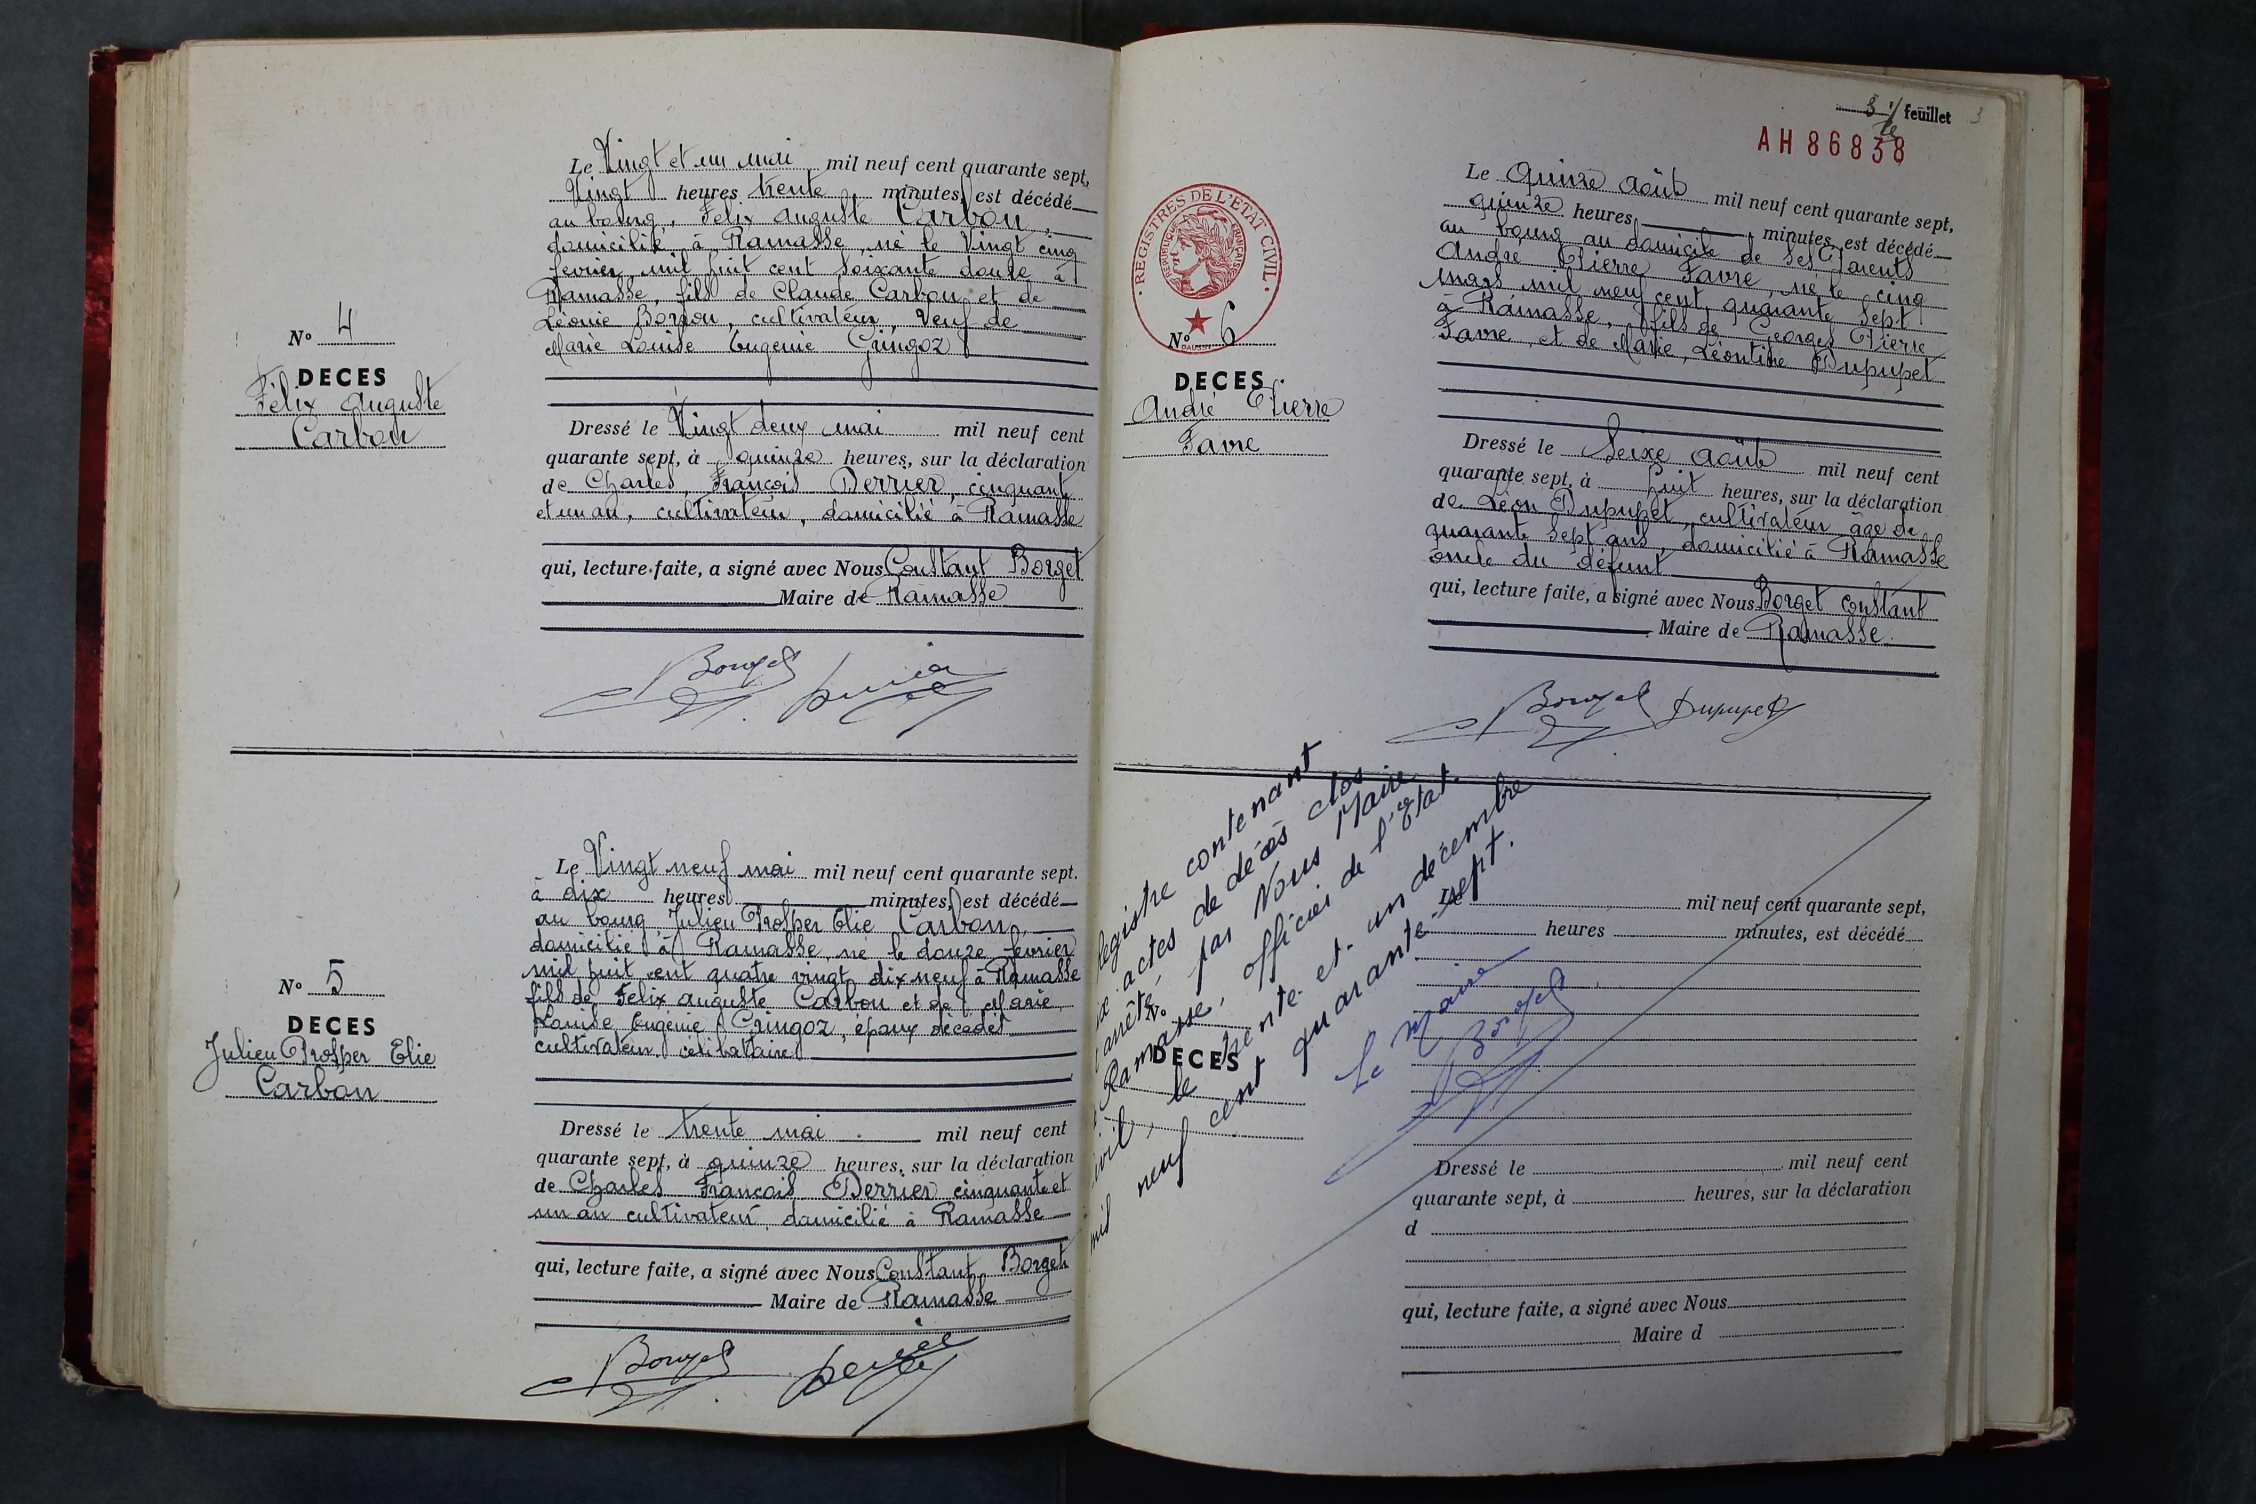 Le Vingt et un mai mil neuf cent quarante sept,
Vingt heures trente minutes, est décédé
au bourg, Félix Auguste Carbon,
domicilié à Ramasse, né le Vingt cinq
fevrier, mil huit cent soixante douze à
Ramasse, fils de Claude Carbon et de
Léonie Borron, cultivateur, Veuf de
Marie Louise Eugénie Gringoz
No 4
DECES
Félix Auguste
Carbon
Dressé le Vingt deux mai mil neuf cent
quarante sept, à quinze heures, sur la déclaration
de Charles, François Perrier, cinquante
et un an, cultivateur, domicilié à Ramasse
qui, lecture faite, a signé avec Nous Constant Borget
Maire de Ramasse
Borget
Le Vingt neuf mai mil neuf cent quarante sept.
à dix heures minutes, est décédé
au bourg, Julien Prosper Elie Carbon,
domicilié à Ramasse, né le douze fevrier
mil huit cent quatre vingt dix neuf à Ramasse
fils de Felix Auguste Carbon et de Marie
Louise Eugénie Gringoz, époux décédés
cultivateur, célibataire
No 5
DECES
Julien Prosper Elie
Carbon
Dressé le trente mai mil neuf cent
quarante sept, à quinze heures, sur la déclaration
de Charles François Perrier cinquante et
un an cultivateur, domicilié à Ramasse
qui, lecture faite, a signé avec Nous Constant Borget
Maire de Ramasse
Borget
3 feuillet 3
AH 86838
REGISTRES DE L'ETAT CIVIL
REPUBLIQUE FRANÇAISE
Le Quinze août mil neuf cent quarante sept,
quinze heures, minutes, est décédé
au bourg au domicile de ses Parents
André Pierre Favre, né le cinq
mars mil neuf cent quarante sept
à Ramasse, fils de Georges Pierre
Favre, et de Marie, Léontine Dupupet
No 6
DECES
André Pierre
Favre
Dressé le Seize août mil neuf cent
quarante sept, à huit heures, sur la déclaration
de Léon Dupupet, cultivateur âgé de
quarante sept ans, domicilié à Ramasse
oncle du défunt
qui, lecture faite, a signé avec Nous Borget Constant
Maire de Ramasse.
Borget Dupupet
registre contenant
actes de décès clos
arrêté par Nous Maire
Ramasse, officier de l'Etat
civil, le trente et un décembre
mil neuf cent quarante sept.
Le Maire
Borget
Le mil neuf cent quarante sept,
heures minutes, est décédé
No
DECES
Dressé le mil neuf cent
quarante sept, à heures, sur la déclaration
d
qui, lecture faite, a signé avec Nous
Maire d